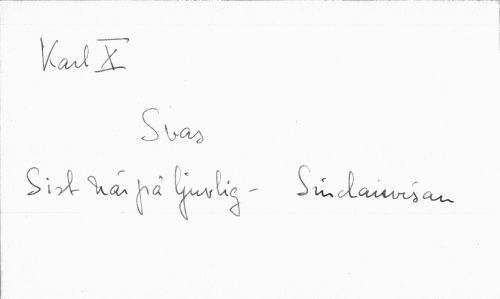 Karl X
Svas
Sist när på ljuvlig - Sinclairvisan